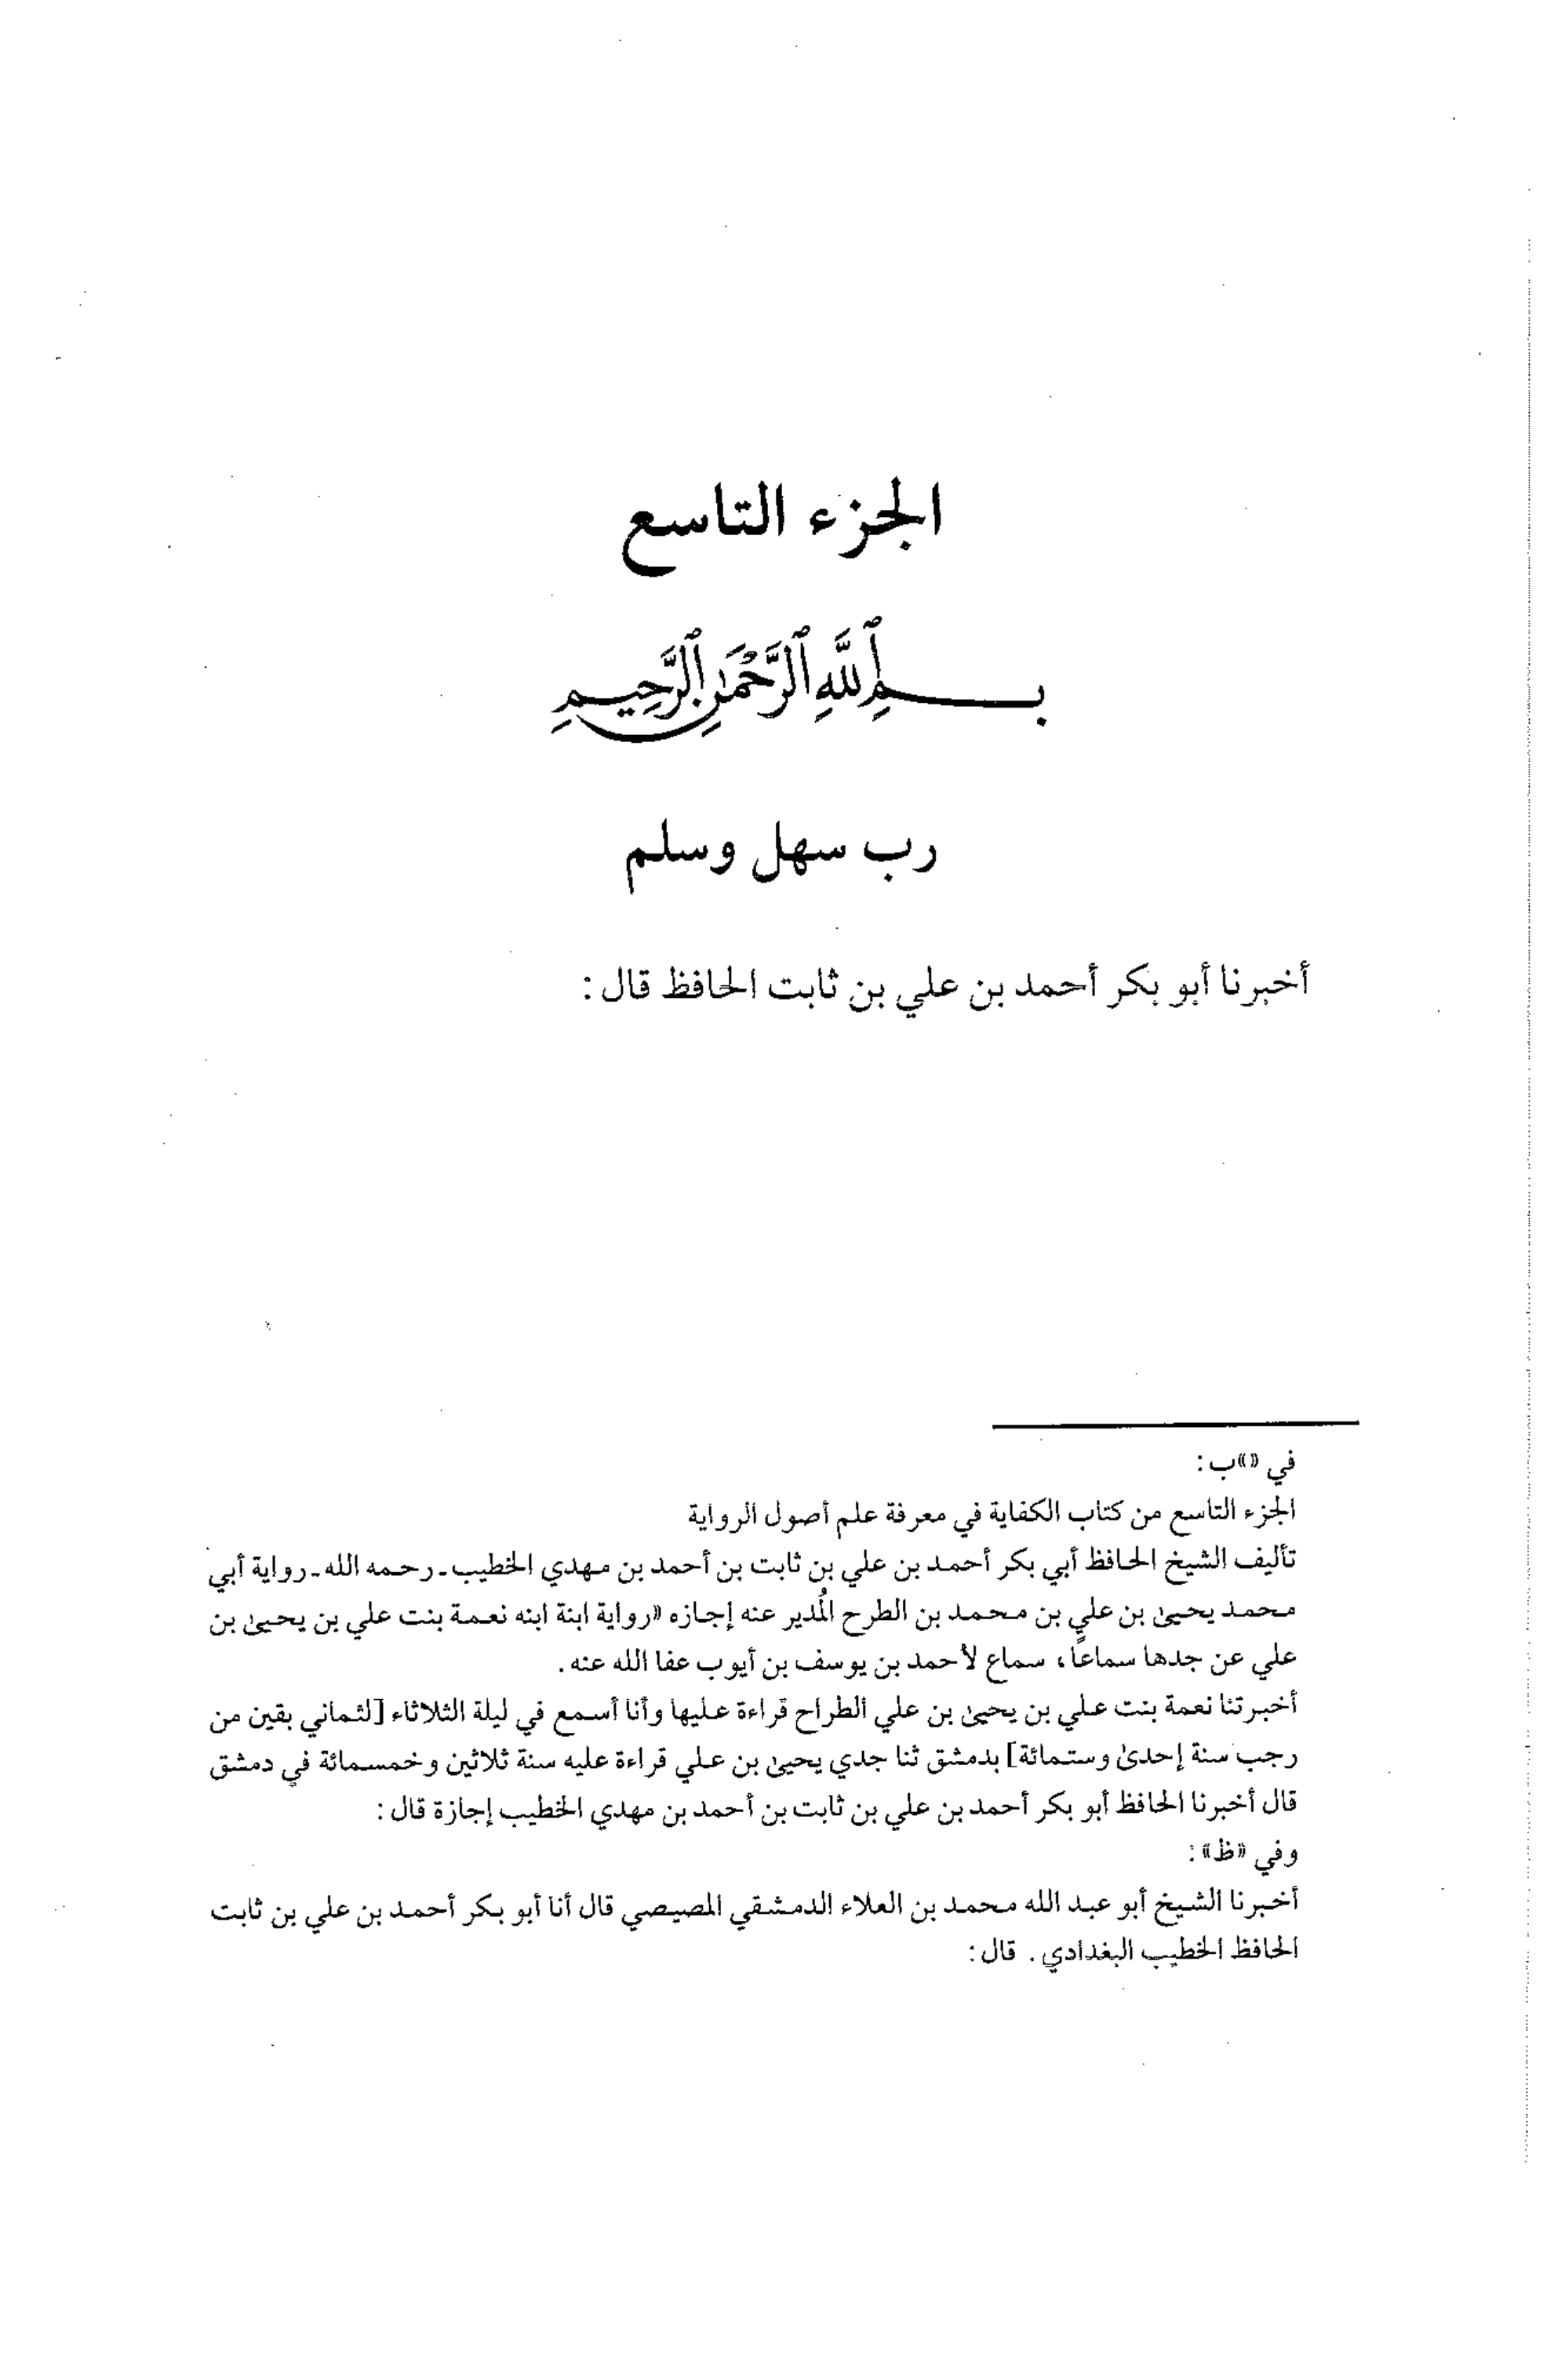 الجزء التاسع
بسم الله الرحمن الرحيم
رب سهل وسلم
أخبرنا أبو بكر أحمد بن علي بن ثابت الحافظ قال :
في «»ب :
الجزء التاسع من كتاب الكفاية في معرفة علم أصول الرواية
تأليف الشيخ الحافظ أبي بكر أحمد بن علي بن ثابت بن أحمد بن مهدي الخطيب ـ رحمه الله ـ رواية أبي
محمد يحيىٰ بن علي بن محمد بن الطرح المُدير عنه إجازه «رواية ابنة ابنه نعمة بنت علي بن يحيىٰ بن
علي عن جدها سماعًا، سماع لأحمد بن يوسف بن أيوب عفا الله عنه .
أخبرتنا نعمة بنت علي بن يحيىٰ بن علي الطراح قراءة عليها وأنا أسمع في ليلة الثلاثاء [لثماني بقين من
رجب سنة إحدىٰ وستمائة] بدمشق ثنا جدي يحيىٰ بن علي قراءة عليه سنة ثلاثين وخمسمائة في دمشق
قال أخبرنا الحافظ أبو بكر أحمد بن علي بن ثابت بن أحمد بن مهدي الخطيب إجازة قال :
وفي «ظ» :
أخبرنا الشيخ أبو عبد الله محمد بن العلاء الدمشقي المصيصي قال أنا أبو بكر أحمد بن علي بن ثابت
الحافظ الخطيب البغدادي . قال :